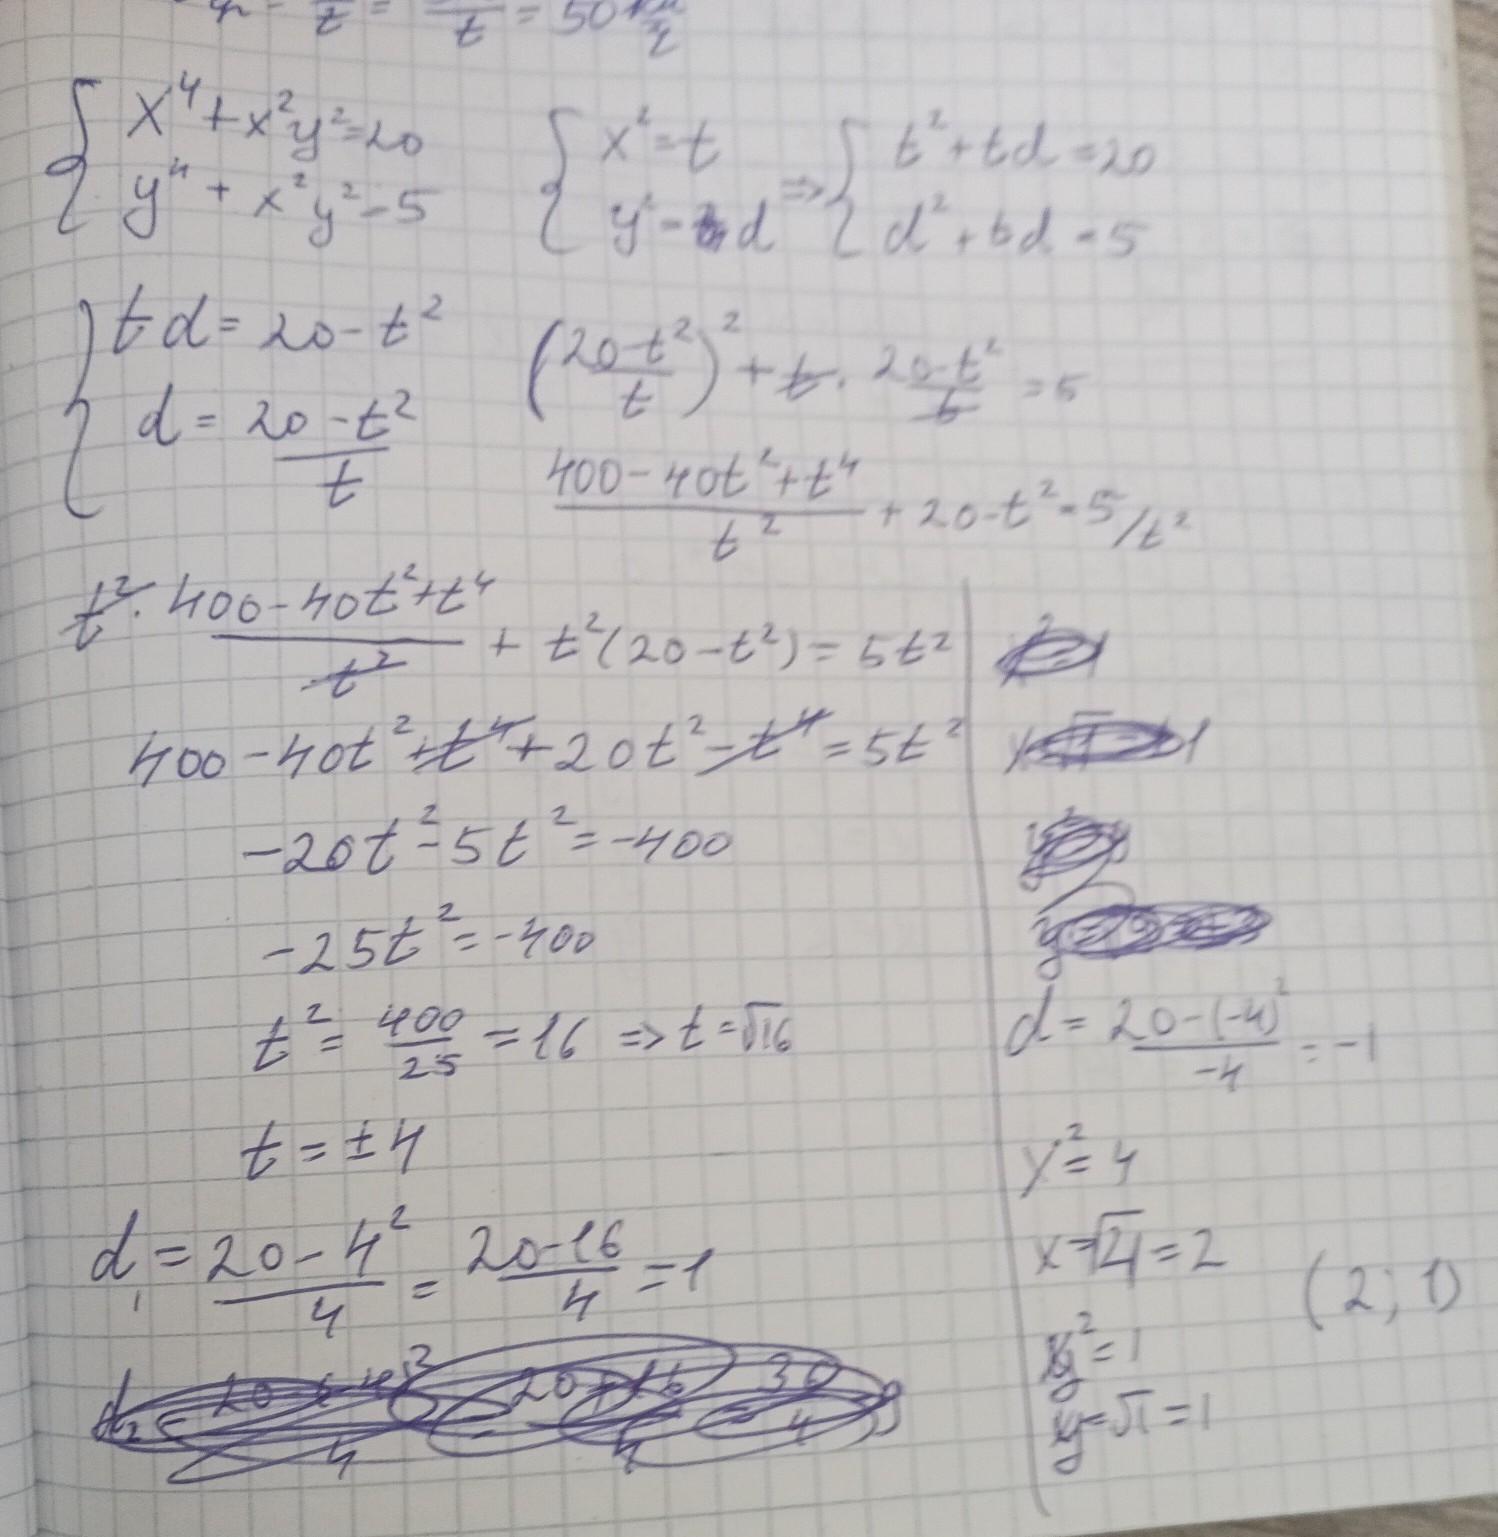 = 50 км/ч
x⁴ + x²y² = 20
y⁴ + x²y² = 5
x² = t
y² = d
⇒
t² + td = 20
d² + td = 5
td = 20 - t²
d = (20 - t²)/t
((20 - t²)/t)² + t · (20 - t²)/t = 5
(400 - 40t² + t⁴)/t² + 20 - t² = 5 / t²
t² · (400 - 40t² + t⁴)/t² + t²(20 - t²) = 5t²
400 - 40t² + t⁴ + 20t² - t⁴ = 5t²
-20t² - 5t² = -400
-25t² = -400
t² = 400/25 = 16 ⇒ t = √16
t = ±4
d₁ = (20 - 4²)/4 = (20 - 16)/4 = 1
d = (20 - (-4)²)/-4 = -1
x² = 4
x = √4 = 2
(2; 1)
y² = 1
y = √1 = 1